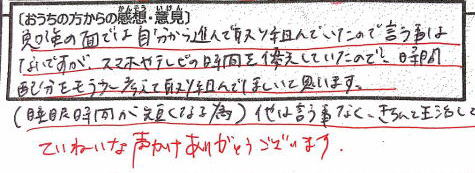 [おうちの方からの感想・意見]
勉強の面では自分から進んで取り組んでいたので言う事は
ないですが、スマホやテレビの時間を
していたので、時間
配分をもう少し考えて取り組んでほしいと思います。
(睡眠時間が短くなる為) 他は言う事なく、きちんと生活して
ていねいな声かけありがとうございます.